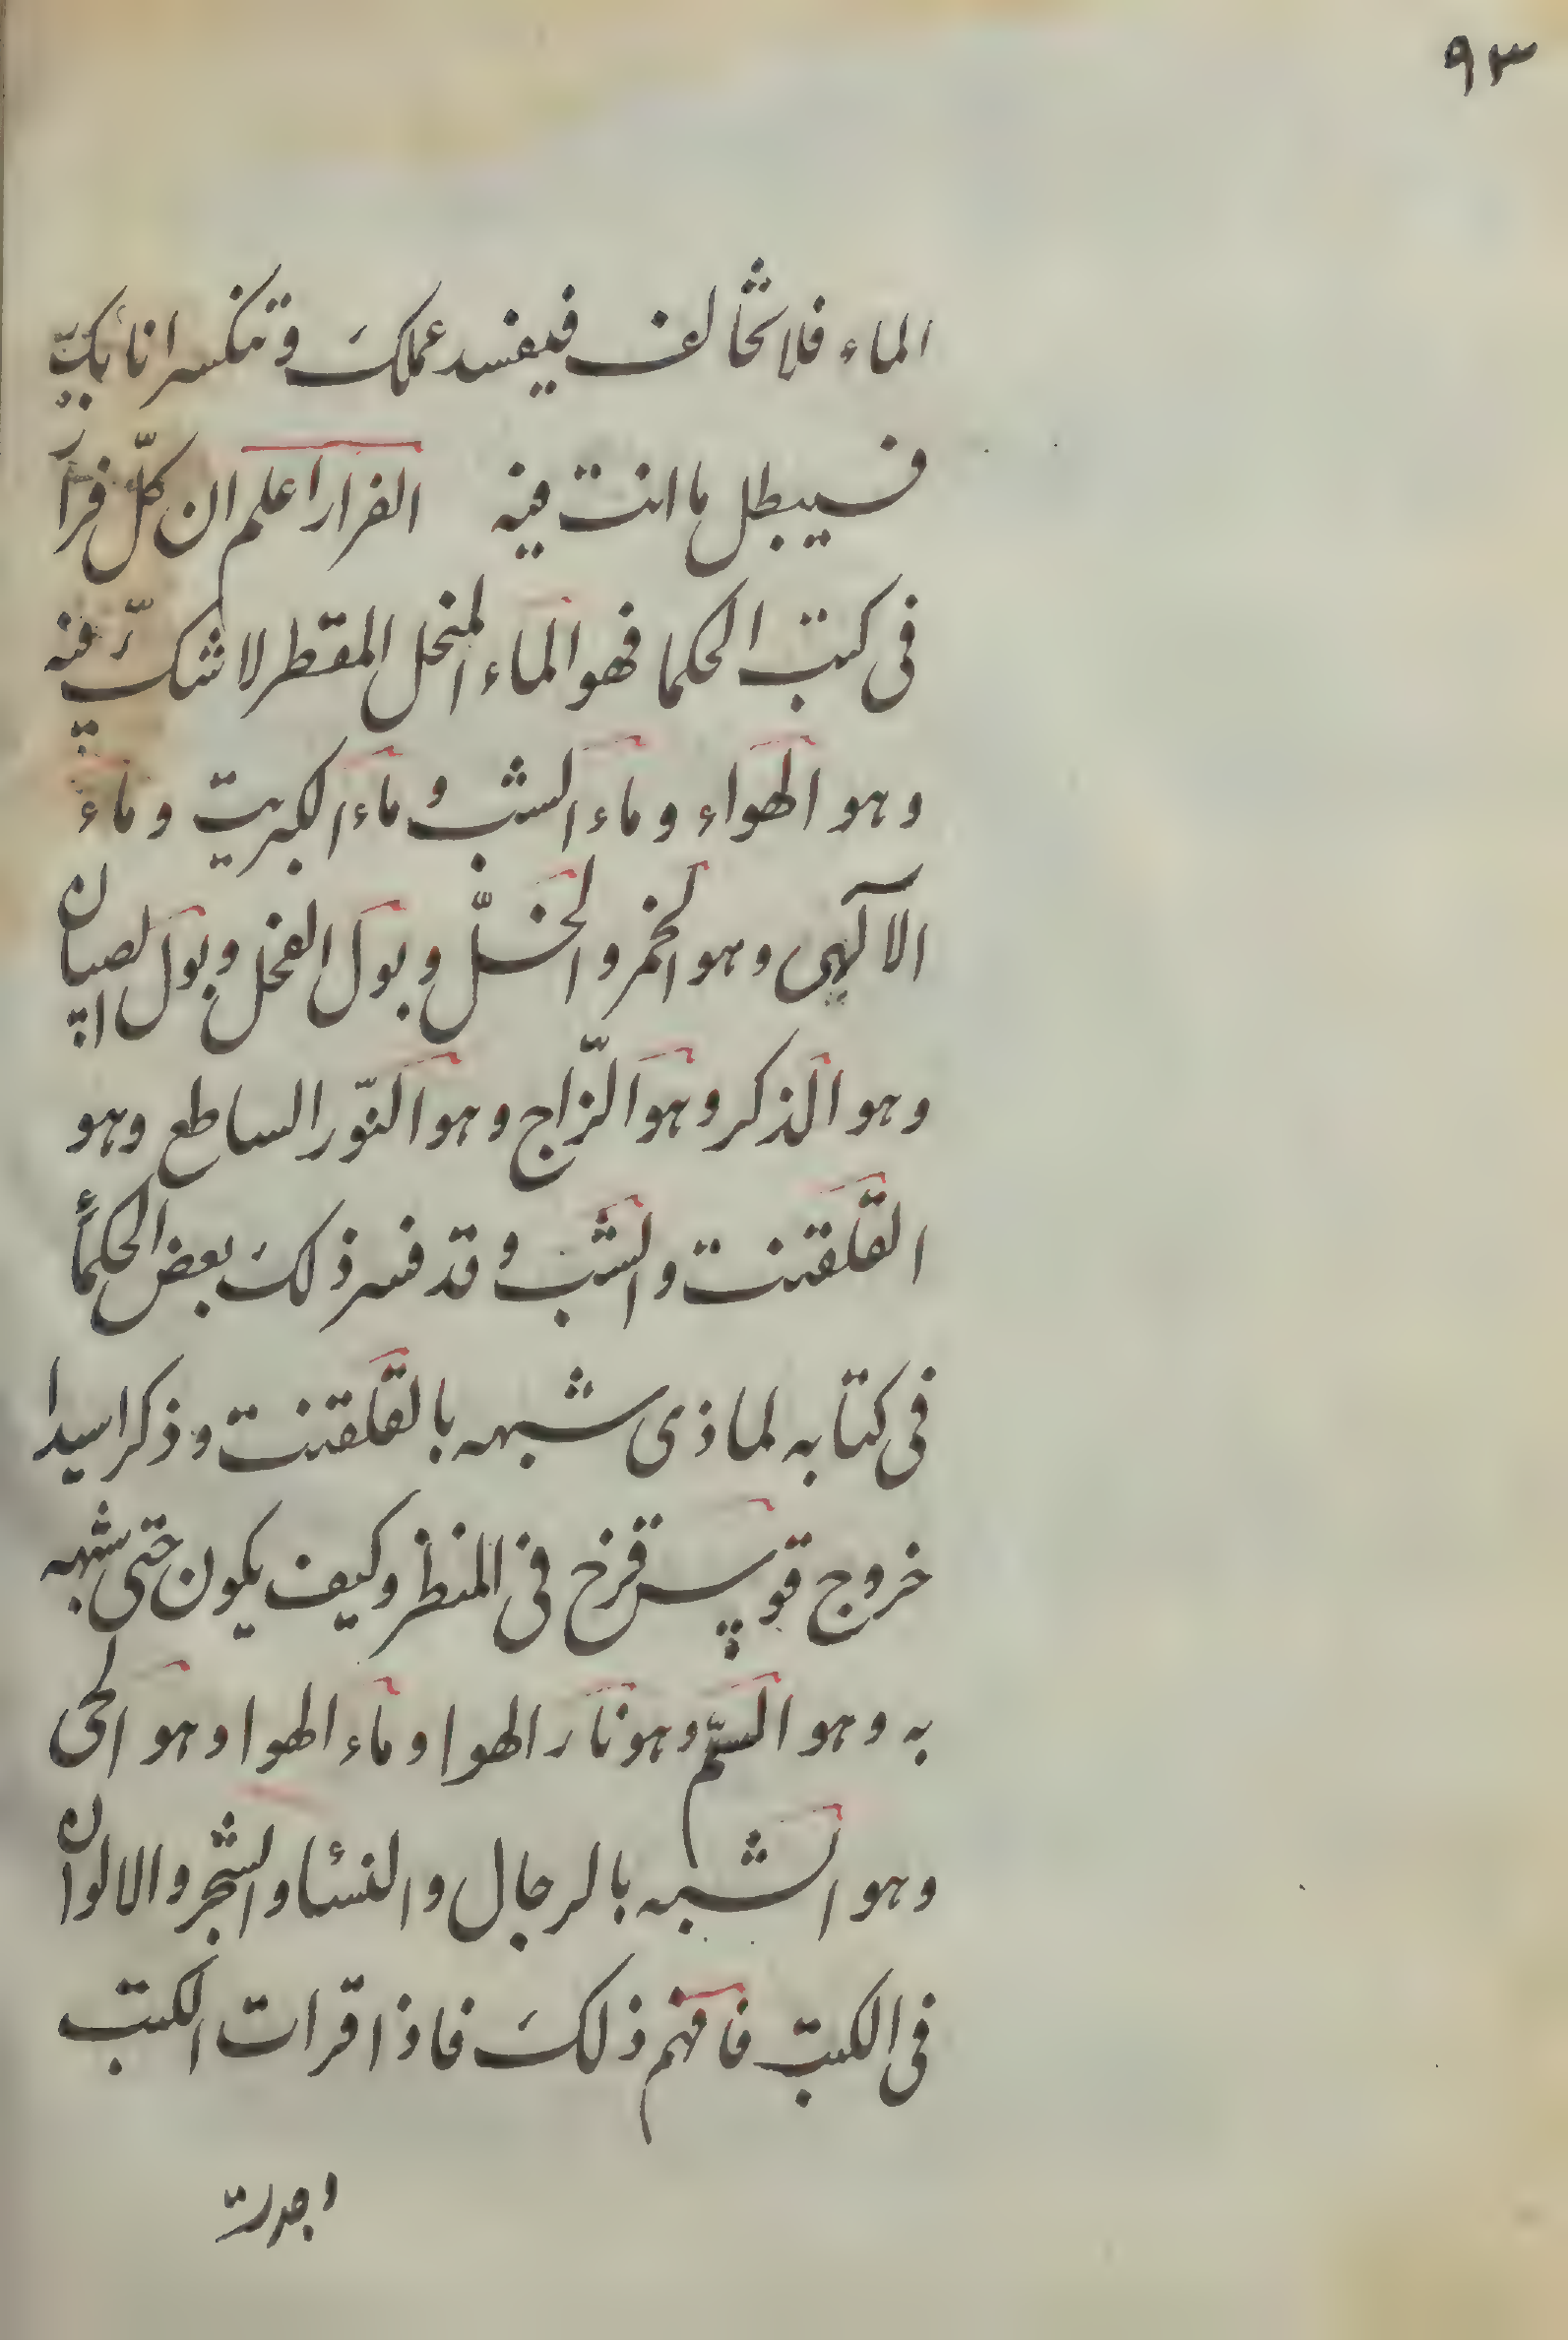 ٩٣
الماء فلا تخالف فيفسد عملكَ وتنكسر انابيك
فيبطل ما انت فيه الفرار اعلم ان كلّ فرار
فى كتب الحكما فهو الماء المنحل المقطر لا شكّ فيه
وهو الهواء وماء الشب وماء الكبريت وماء
الالهى وهو الخمر والخلّ وبول الفحل وبول الصبيان
وهو الذكر وهو الزّاج وهو النّور الساطع وهو
القلقنت والشب وقد فسر ذلكَ بعض الحكمأ
فى كتابه لماذى شبهه بالقلقنت وذكر اسيدا
خروج قوس قزح فى المنظر وكيف يكون حتى شبهه
به وهو السّم وهو نار الهوا وماء الهوا وهو الحى
وهو الشبه بالرجال والنسئا والشجر والالوان
فى الكتب فافهم ذلكَ فاذا قرات الكتب
وجدت